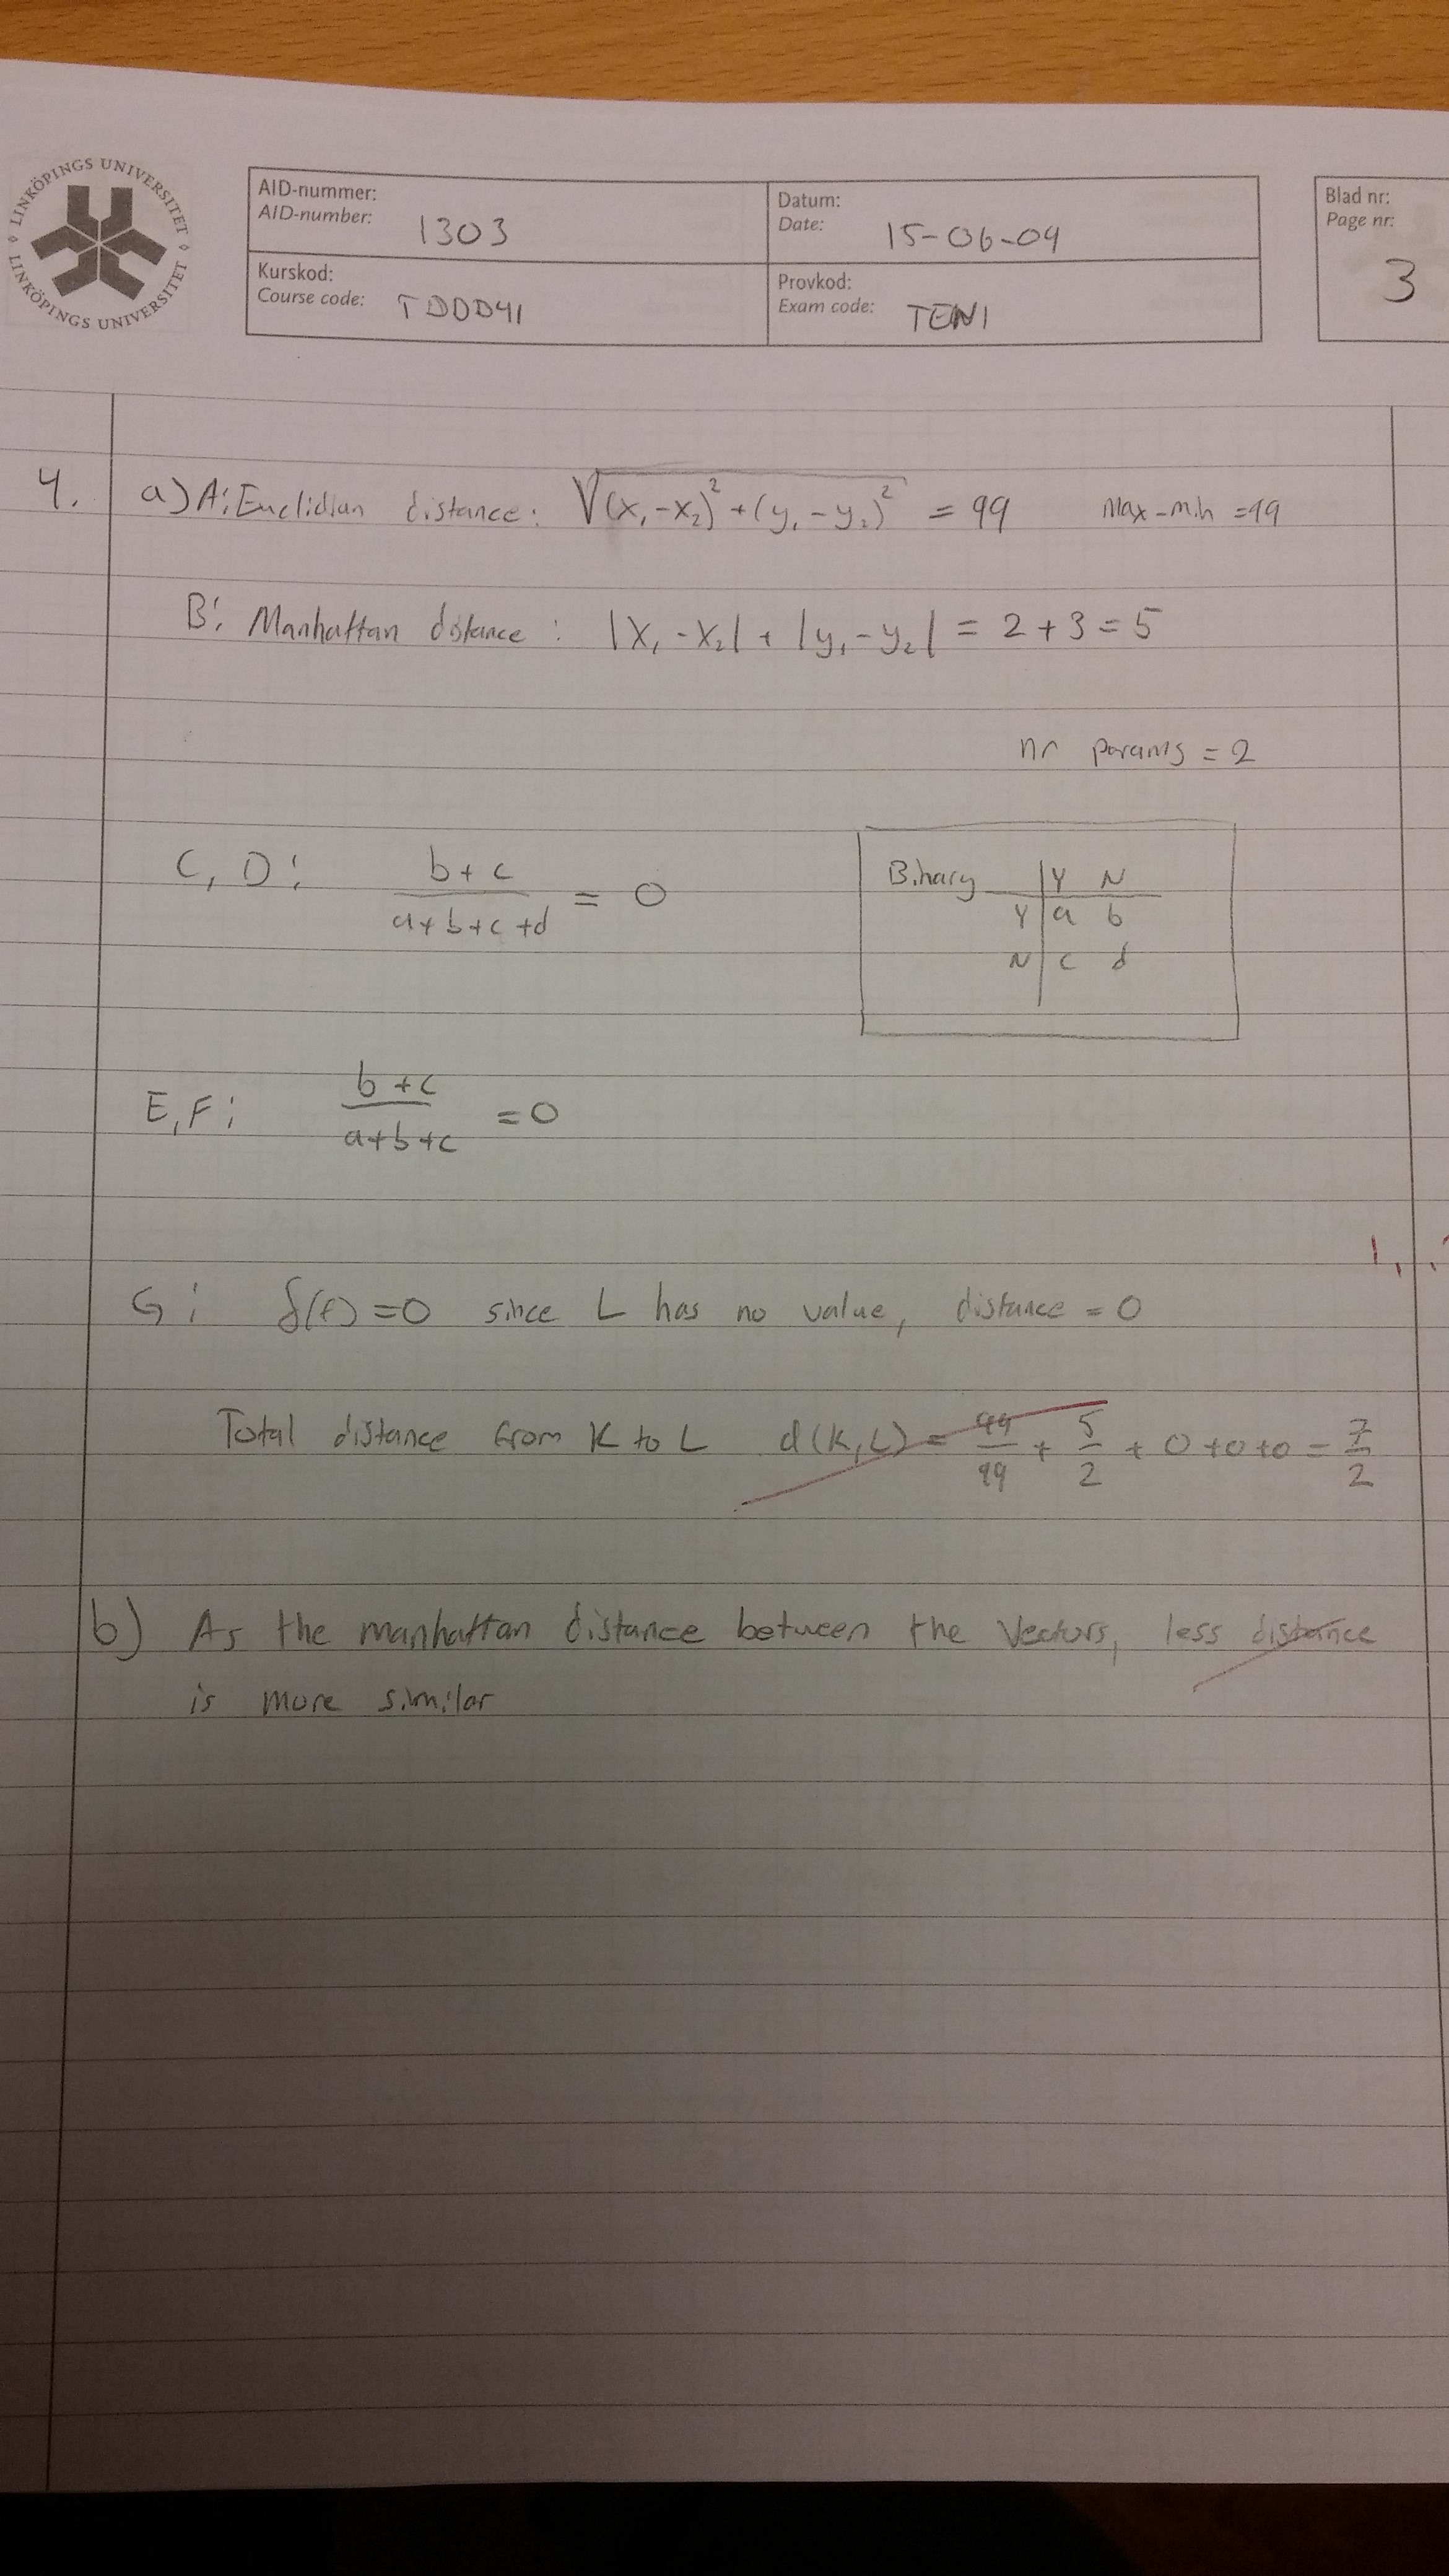 LINKÖPINGS UNIVERSITET
LINKÖPINGS UNIVERSITET
AID-nummer:
AID-number: 1303
Datum:
Date: 15-06-09
Blad nr:
Page nr:
3
Kurskod:
Course code: TDDD41
Provkod:
Exam code: TEN1
4. a) A: Euclidian distance: √((x₁-x₂)²+(y₁-y₂)²) = 99 Max-min = 99
B: Manhattan distance: |x₁-x₂| + |y₁-y₂| = 2+3=5
nr params = 2
C, D: (b+c)/(a+b+c+d) = 0
Binary Y N
Y a b
N c d
E,F: (b+c)/(a+b+c) = 0
G: δ(f)=0 since L has no value, distance = 0
Total distance from K to L d(K,L) = 99/99 + 5/2 + 0+0+0 = 7/2
b) As the manhattan distance between the vectors, less distance
is more similar